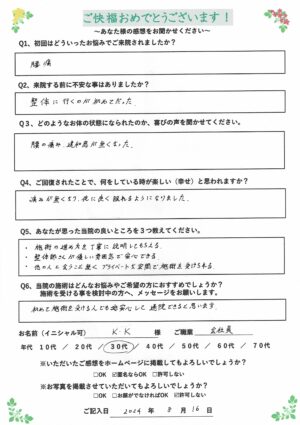 ご快福おめでとうございます！
～あなた様の感想をお聞かせください～
Q1、初回はどういったお悩みでご来院されましたか？
腰痛
Q2、来院する前に不安な事はありましたか？
整体に行くのが初めてだった
Q３、どのようなお体の状態になられたのか、喜びの声を聞かせてください。
腰の痛み、違和感が無くなった。
Q4、ご回復されたことで、何をしている時が楽しい（幸せ）と思われますか？
痛みが無くなり、夜に良く眠れるようになりました。
Q5、あなたが思った当院の良いところを３つ教えてください。
・施術の進め方を丁寧に説明してもらえる。
・整体師さんが優しい雰囲気で安心できる
・他の人も会うこと無くプライベートな空間で施術を受けられる。
Q6、当院の施術はどんなお悩みやご希望の方におすすめでしょうか？
施術を受ける事を検討中の方へ、メッセージをお願いします。
初めて施術を受ける人でも安心して通院できると思います。
お名前（イニシャル可） K.K 様 ご職業 会社員
年代 10代 / 20代 / 30代 / 40代 / 50代 / 60代 / 70代
※いただいたご感想をホームページに掲載してもよろしいでしょうか？
□OK ☑匿名ならOK □許可しない
※お写真を掲載させていただいてもよろしいでしょうか？
□OK □お顔がでなければOK ☑許可しない
ご記入日 2024 年 8 月 16 日